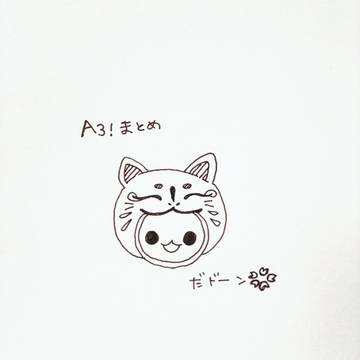 A3!まとめ
だドーン